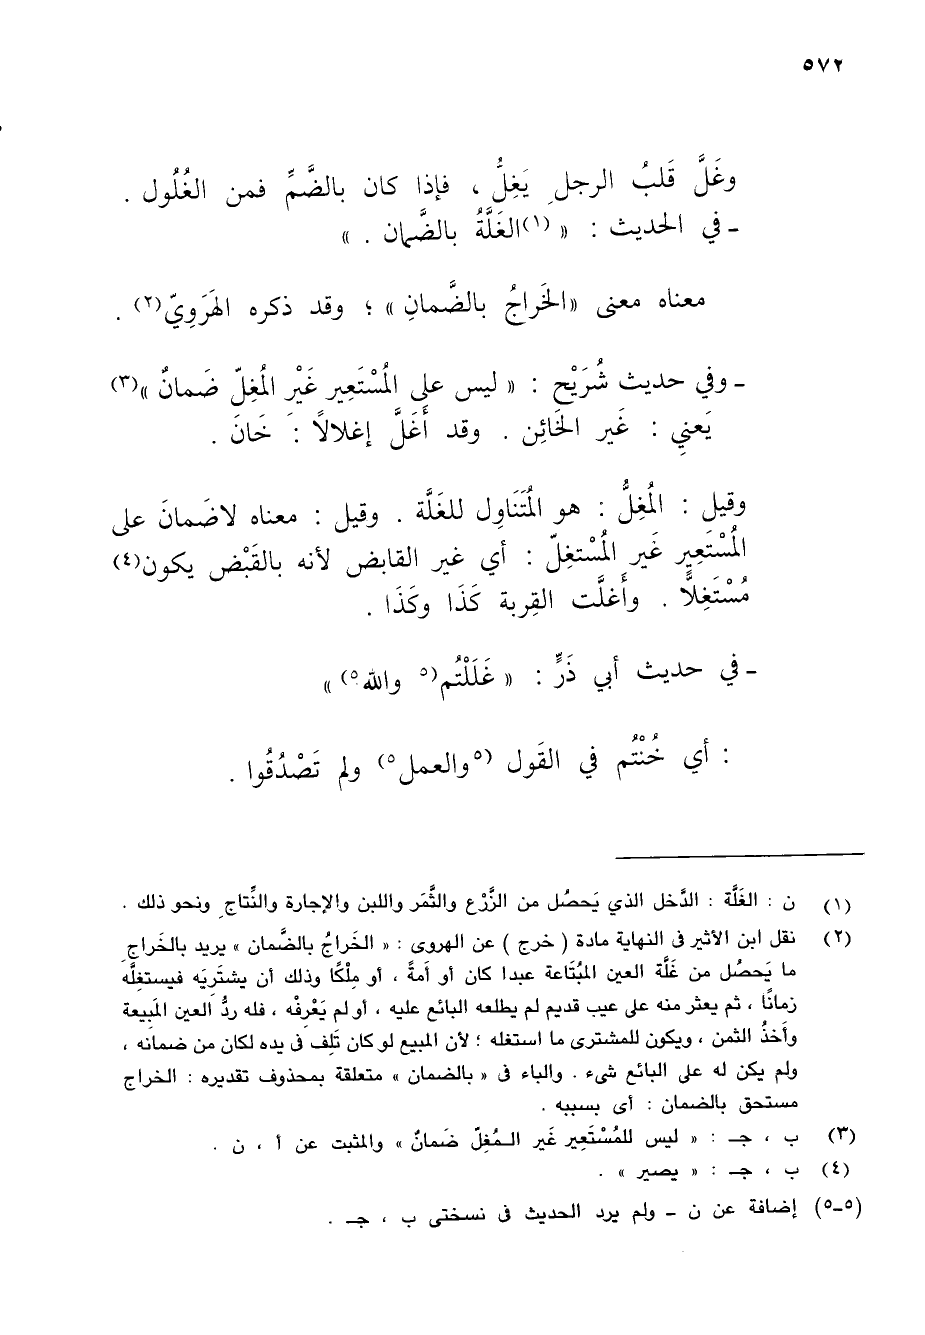 ٥٧٢
وغَلَّ قَلبُ الرجلِ يَغِلُّ ، فإذا كان بالضَّمِّ فمن الغُلُول .
- في الحديث : « (١)الغَلَّةُ بالضَّمان . »
معناه معنى «الخَراجُ بالضَّمانِ» ؛ وقد ذكره الهَرَوِيّ(٢) .
- وفي حديث شُرَيْح : « ليس على المُسْتَعِير غَيْر المُغِلّ ضَمانٌ »(٣)
يَعنِي : غَير الخَائِن . وقد أَغَلَّ إغلالاً : خَانَ .
وقيل : المُغِلُّ : هو المُتَنَاوِل للغَلَّة . وقيل : معناه لاضَمانَ على
المُسْتَعِير غَير المُسْتغِلّ : أي غير القابض لأنه بالقَبْض يكون(٤)
مُسْتَغِلاًّ . وأَغلَّت القِربة كَذَا وكَذَا .
- في حديث أبي ذَرٍّ : « غَلَلْتُم(٥ والله٥) »
: أي خُنْتُم في القَول (٥والعمل٥) ولم تَصْدُقُوا .
(١) ن : الغَلَّة : الدَّخل الذي يَحصُل من الزَّرْع والثَّمَر واللبن والإجارة والنِّتاج ونحو ذلك .
(٢) نقل ابن الأثير فى النهاية مادة ( خرج ) عن الهروى : « الخَراجُ بالضَّمان » يريد بالخَراج
ما يَحصُل من غَلَّة العين المُبْتَاعة عبدا كان أو أَمةً ، أو مِلْكًا وذلك أن يشتَرِيَه فيستغلَّه
زمانًا ، ثم يعثر منه على عيب قديم لم يطلعه البائع عليه ، أو لم يَعْرِفْه ، فله ردُّ العين المَبِيعة
وأَخذُ الثمن ، ويكون للمشترى ما استغله ؛ لأن المبيع لو كان تَلِف فى يده لكان من ضمانه ،
ولم يكن له على البائع شىء . والباء فى « بالضمان » متعلقة بمحذوف تقديره : الخراج
مستحق بالضمان : أى بسببه .
(٣) ب ، جـ : « ليس للمُسْتَعِير غَير المُغِلّ ضَمانٌ » والمثبت عن أ ، ن .
(٤) ب ، جـ : « يصير » .
(٥-٥) إضافة عن ن - ولم يرد الحديث فى نسختى ب ، جـ .